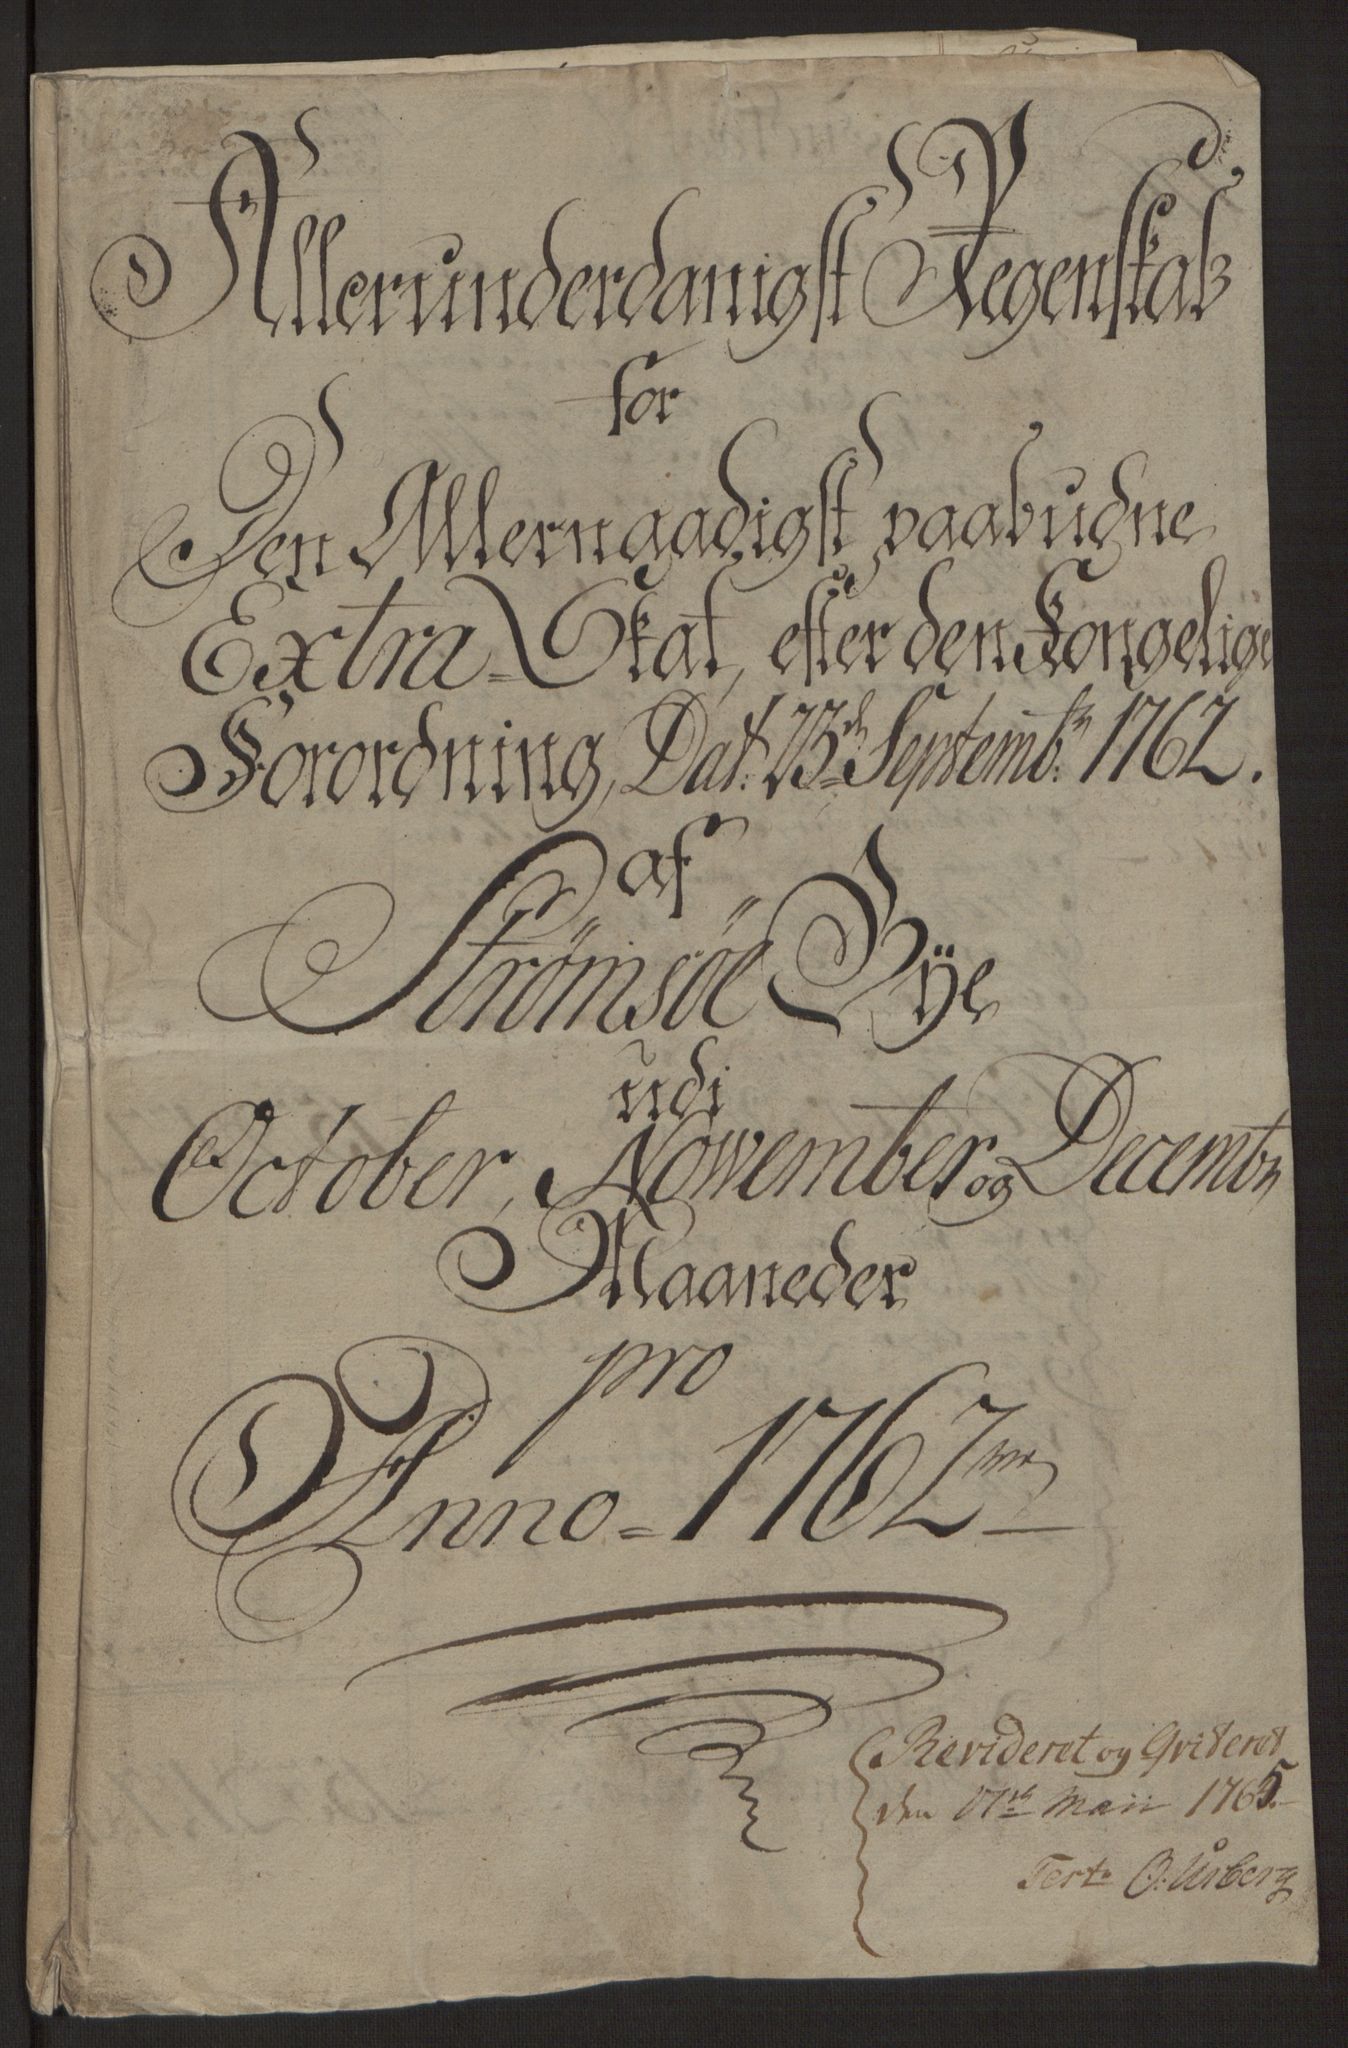 Allerunderdanigst Regenskab
for
Den Allernaadigst paabudne
Extra-Skat, efter den Kongelige
Forordning, Dat: 23de Septembr: 1762.
af
Strømsøe Bÿe
udi
October, Nowember og Decembr
Maaneder
pro
Anno = 1762
Revideret og Qviteret
den 17de Maii 1765.
Test: O. Aasberg